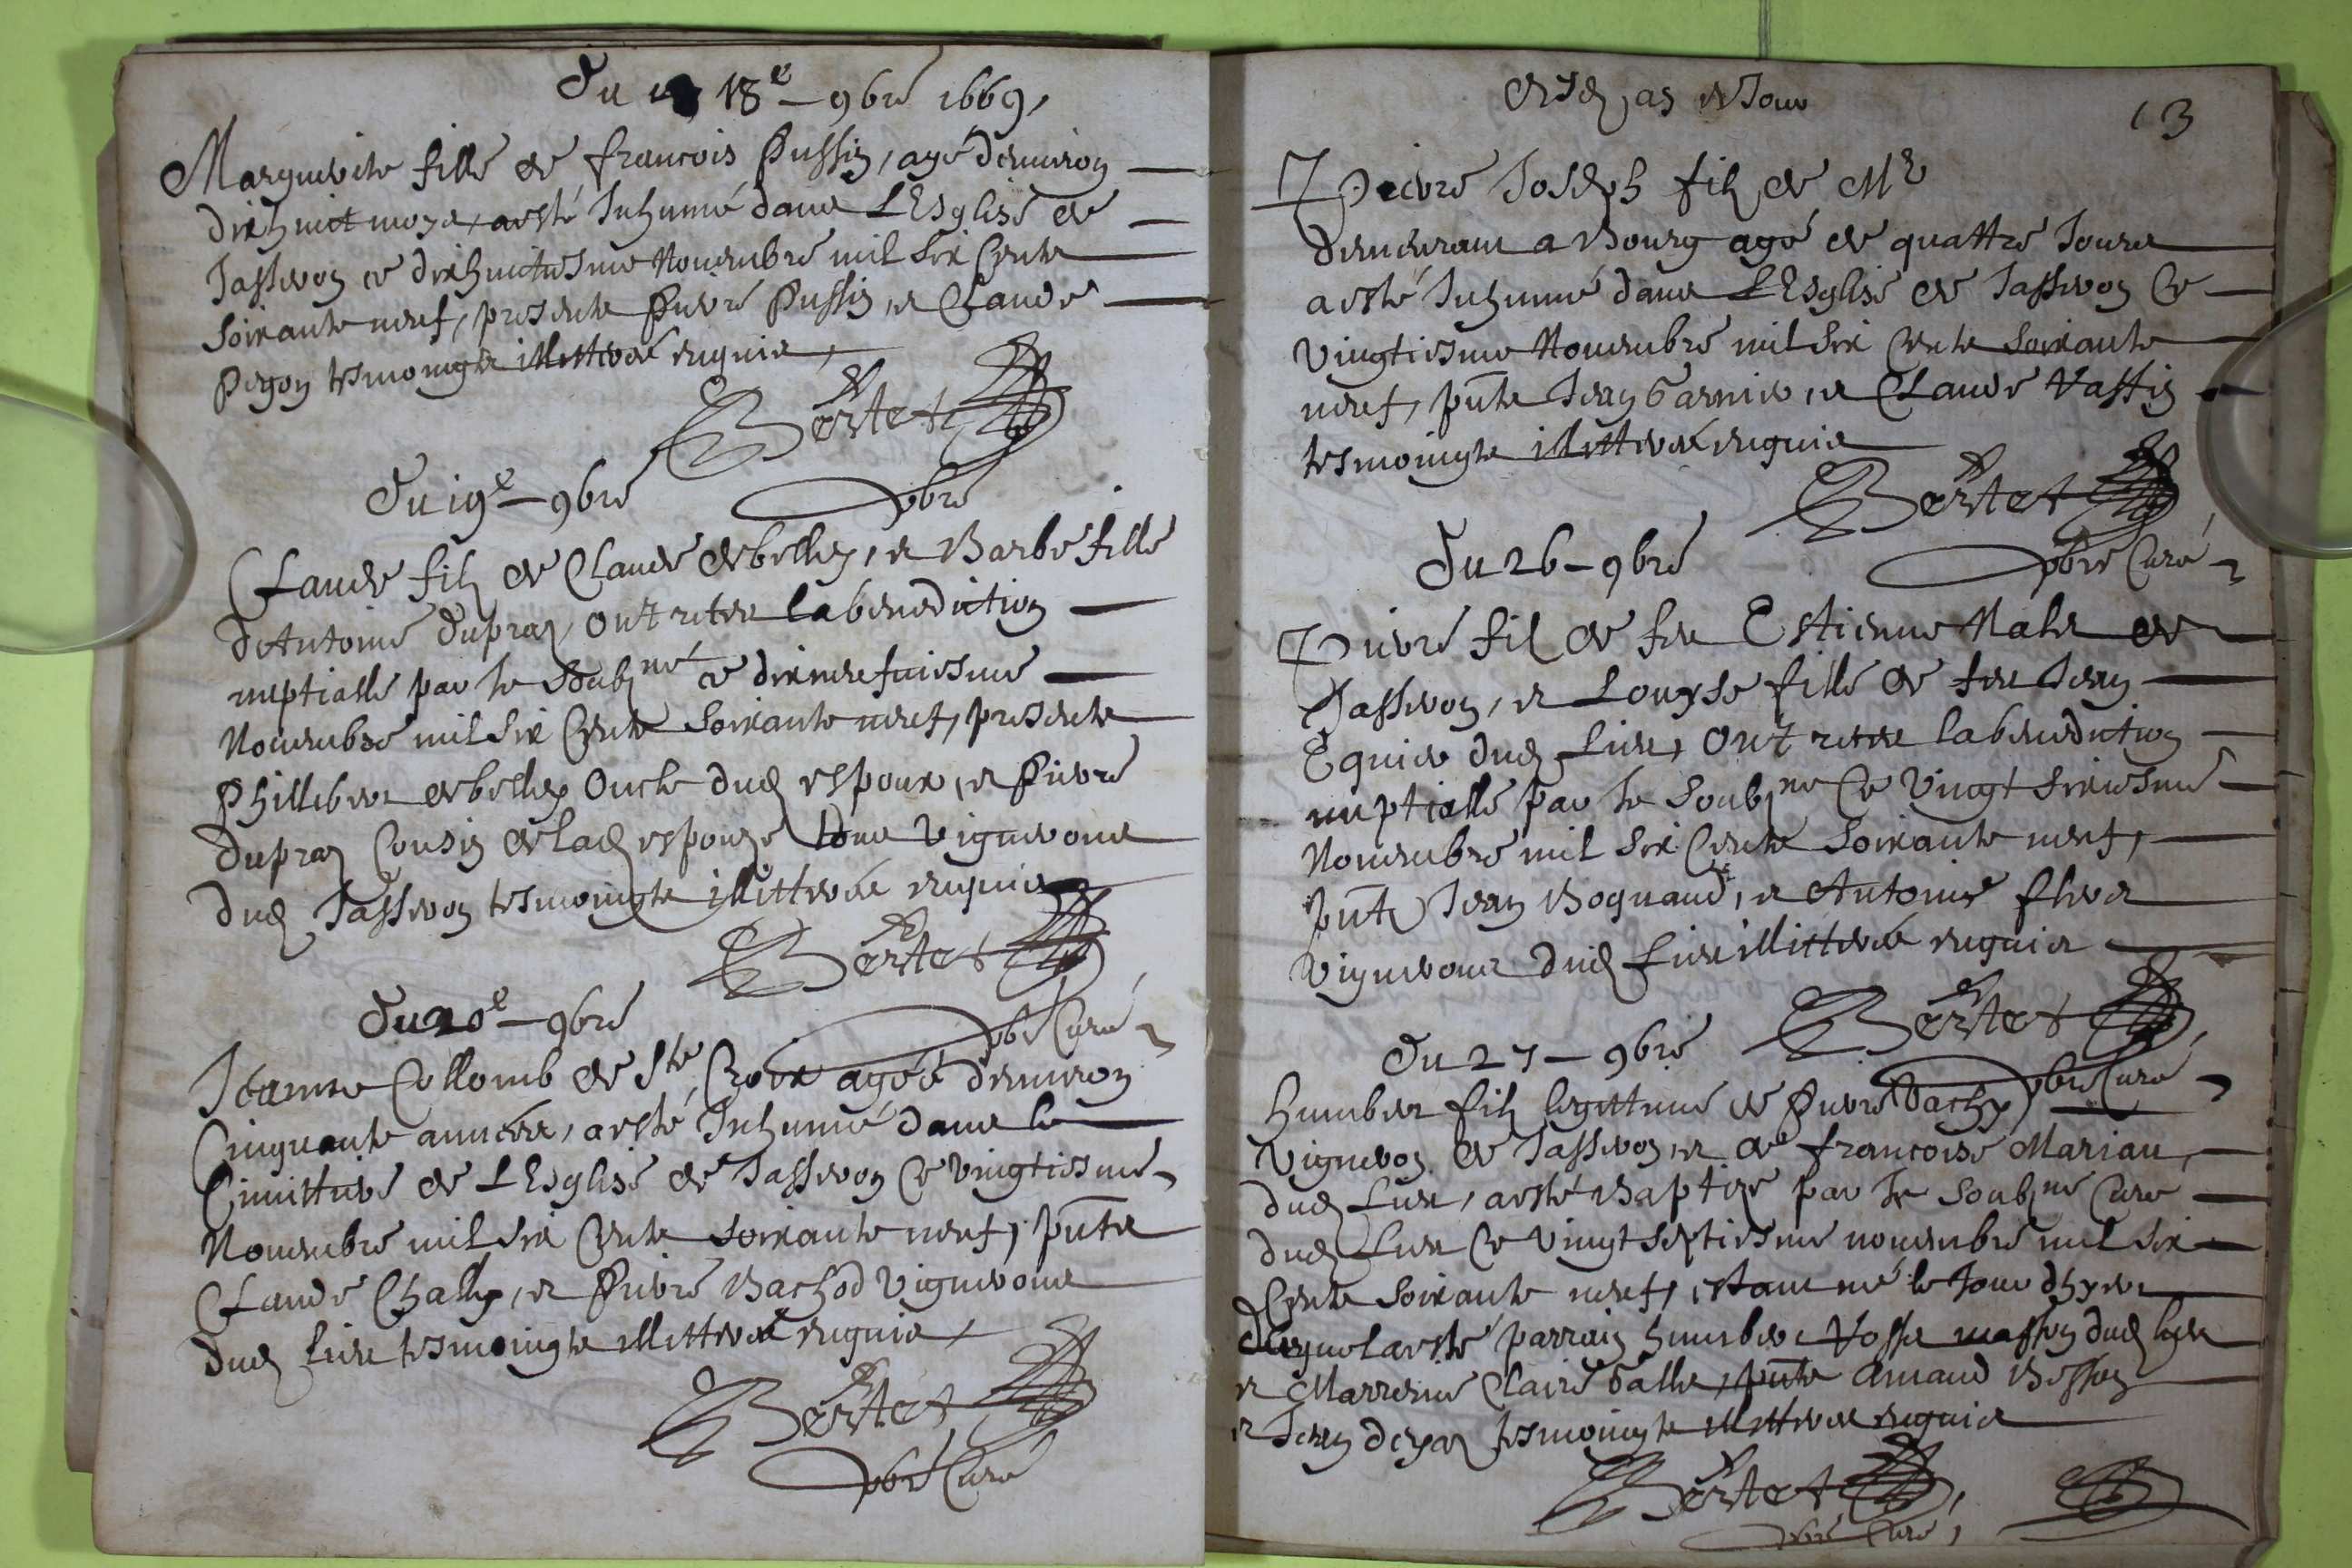 Du 18e 9bre 1669,
Marguerite fille de francois Pussin, agé d'enuiron
dix huict moys, a esté Inhumé dans L'Esglise de
Jasseron ce dixhuictiesme Nouembre mil six Cents
soixante neuf, presents Pierre Pussin, et Claude
tesmoingts illettrés requis,
Bertet
pbre
Du 19e 9bre
Claude filz de Claude debelley, et Barbe fille
d'Antoine dupraz, Ont receu la benediction
nuptialle par le Soubzné ce dixneufuiesme
Nouembre mil six Cents soixante neuf, presents
Phillibert debelley Oncle dud espoux, et Pierre
dupraz Cousin de lad espouze tous vignerons
dud Jasseron tesmoingts illettrés requis
Bertet
pbre Curé
Du 20e 9bre
Jeanne Collomb de Ste Croix agée d'enuiron
Cinquante années, a esté Inhumé dans le
Cimittiere de L'Esglise de Jasseron Ce vingtiesme
Nouembre mil six Cents soixante neuf, pnts
Claude Chally, et Pierre Bachod vignerons
dud lieu tesmoingts illettrés requis,
Bertet
pbre Curé
13
Pierre Joseph filz de Mr
demeurant a Bourg agé de quattre Jours
a esté Inhumé dans L'Esglise de Jasseron Ce
vingtiesme Nouembre mil six Cents soixante
neuf, pnts Jean Garnier, et Claude Vassin
tesmoingts illettrés requis
Bertet
pbre Curé
Du 26 9bre
Pierre fil de feu Estienne de
Jasseron, et Louyse fille de feu Jean
dud Lieu, Ont receu la benediction
nuptialle par le Soubzné Ce vingt sixiesme
Nouembre mil six Cents soixante neuf,
pnts Jean et Antoine
vignerons dud Lieu illittrés requis
Bertet
pbre Curé
Du 27 9bre
humbert filz legittime de Pierre Vachy
vigneron de Jasseron, et de francoise
dud Lieu, a esté Baptizé par le Soubzné Curé
dud Lieu Ce vingt septiesme nouembre mil six
Cents soixante neuf, estant né le Jour d'hyer
duquel a esté parrain humbert masson dud lieu
et Marreine Claire Galle, pnts Besson
et Jean tesmoingts illettrés requis
Bertet
pbre Curé,